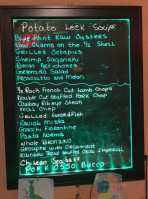 Potato Leek Soup
Blue Point Raw Oysters
Raw Clams on the ½ Shell
Grilled Octopus
Shrimp Saganaki
Asian Reticchones
Calamari Salad
Prosciutto and Melon
½ Rack French Cut Lamb Chops
Double Cut Stuffed Pork Chop
Cowboy Ribeye Steak
Veal Chop
Grilled Swordfish
Ravioli
Gnocchi Fiorentine
Pasta Norma
Whole Branzino
Grouper with Oreganata
Rainbow Trout Stuffed Crab Imperial
Chilean Seabass
Pork Osso Bucco